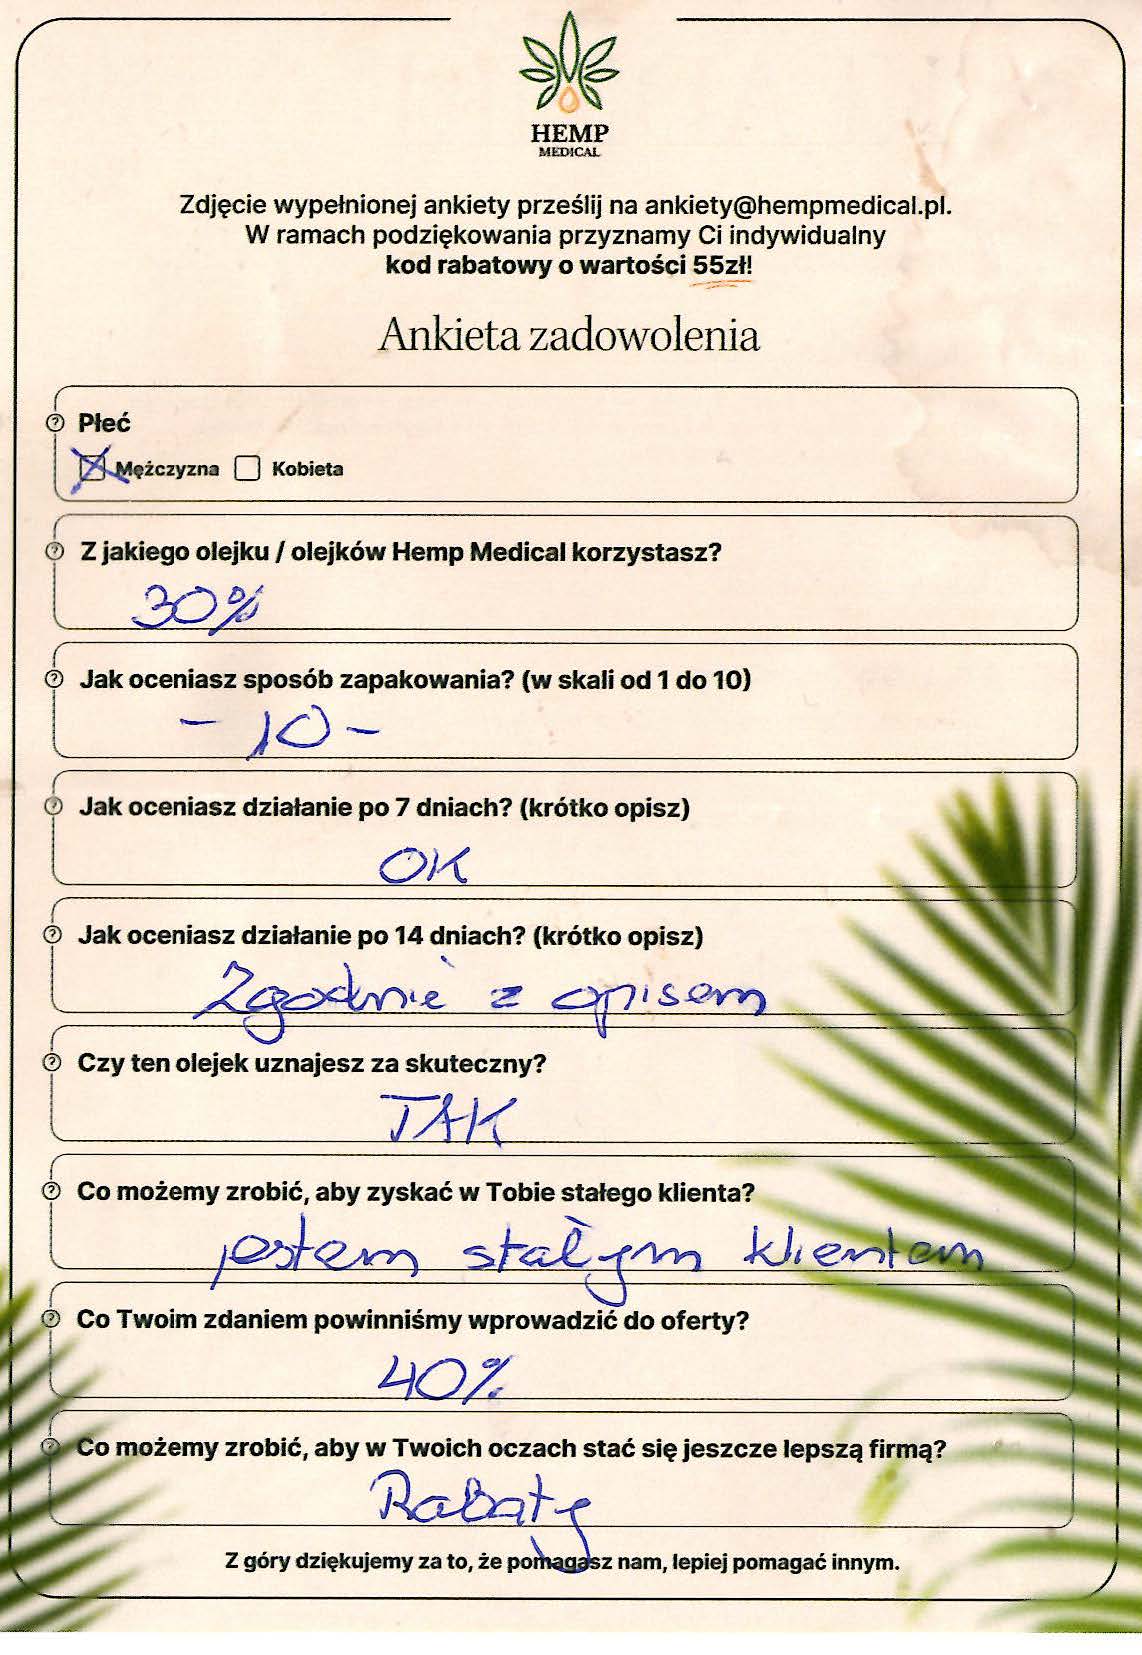 HEMP
MEDICAL
Zdjęcie wypełnionej ankiety prześlij na ankiety@hempmedical.pl.
W ramach podziękowania przyznamy Ci indywidualny
kod rabatowy o wartości 55zł!
Ankieta zadowolenia
Płeć
Mężczyzna Kobieta
Z jakiego olejku / olejków Hemp Medical korzystasz?
30%
Jak oceniasz sposób zapakowania? (w skali od 1 do 10)
- 10 -
Jak oceniasz działanie po 7 dniach? (krótko opisz)
OK
Jak oceniasz działanie po 14 dniach? (krótko opisz)
Zgodnie z opisem
Czy ten olejek uznajesz za skuteczny?
TAK
Co możemy zrobić, aby zyskać w Tobie stałego klienta?
jestem stałym klientem
Co Twoim zdaniem powinniśmy wprowadzić do oferty?
40%
Co możemy zrobić, aby w Twoich oczach stać się jeszcze lepszą firmą?
Rabaty
Z góry dziękujemy za to, że pomagasz nam, lepiej pomagać innym.